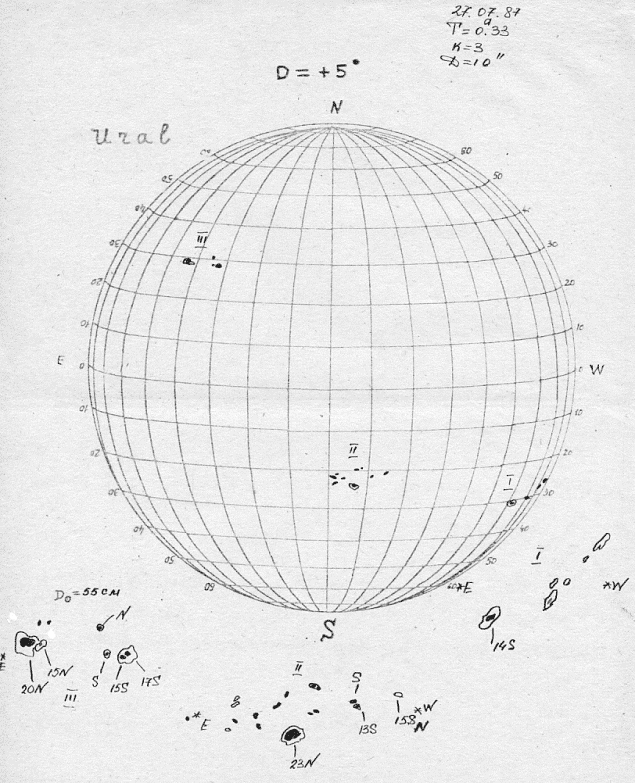 27.07.87
T=0.33
K=3
D=10"
D = +5°
N
Ural
60
50
50
40
III
30
30
20
20
10
10
E
0
0
W
10
10
20
II
20
I
30
30
40
40
50
50
I
60
*E
*W
D₀=55 CM
N
S
14S
*E
15N
S
15S
17S
20N
III
II
S
*E
13S
15S
*W
N
23N